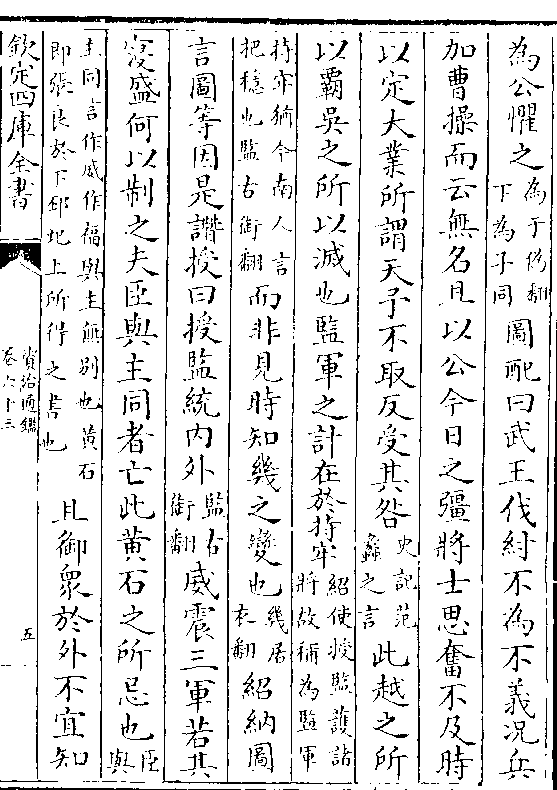 為公懼之為于偽翻下為子同圖配曰武王伐紂不為不義況兵
加曹操而云無名且以公今日之彊將士思奮不及時
以定大業所謂天予不取反受其咎史記范蠡之言此越之所
以霸吳之所以滅也監軍之計在於持牢紹使授監護諸將故稱為監軍
持牢猶今南人言把穩也監古銜翻而非見時知幾之變也幾居衣翻紹納圖
言圖等因是譖授曰授監統內外監古銜翻威震三軍若其
寖盛何以制之夫臣與主同者亡此黃石之所忌也臣與
主同言作威作福與主無別也黃石即張良於下邳圯上所得之書也且御衆於外不宜知
欽定四庫全書
資治通鑑
卷六十三
五